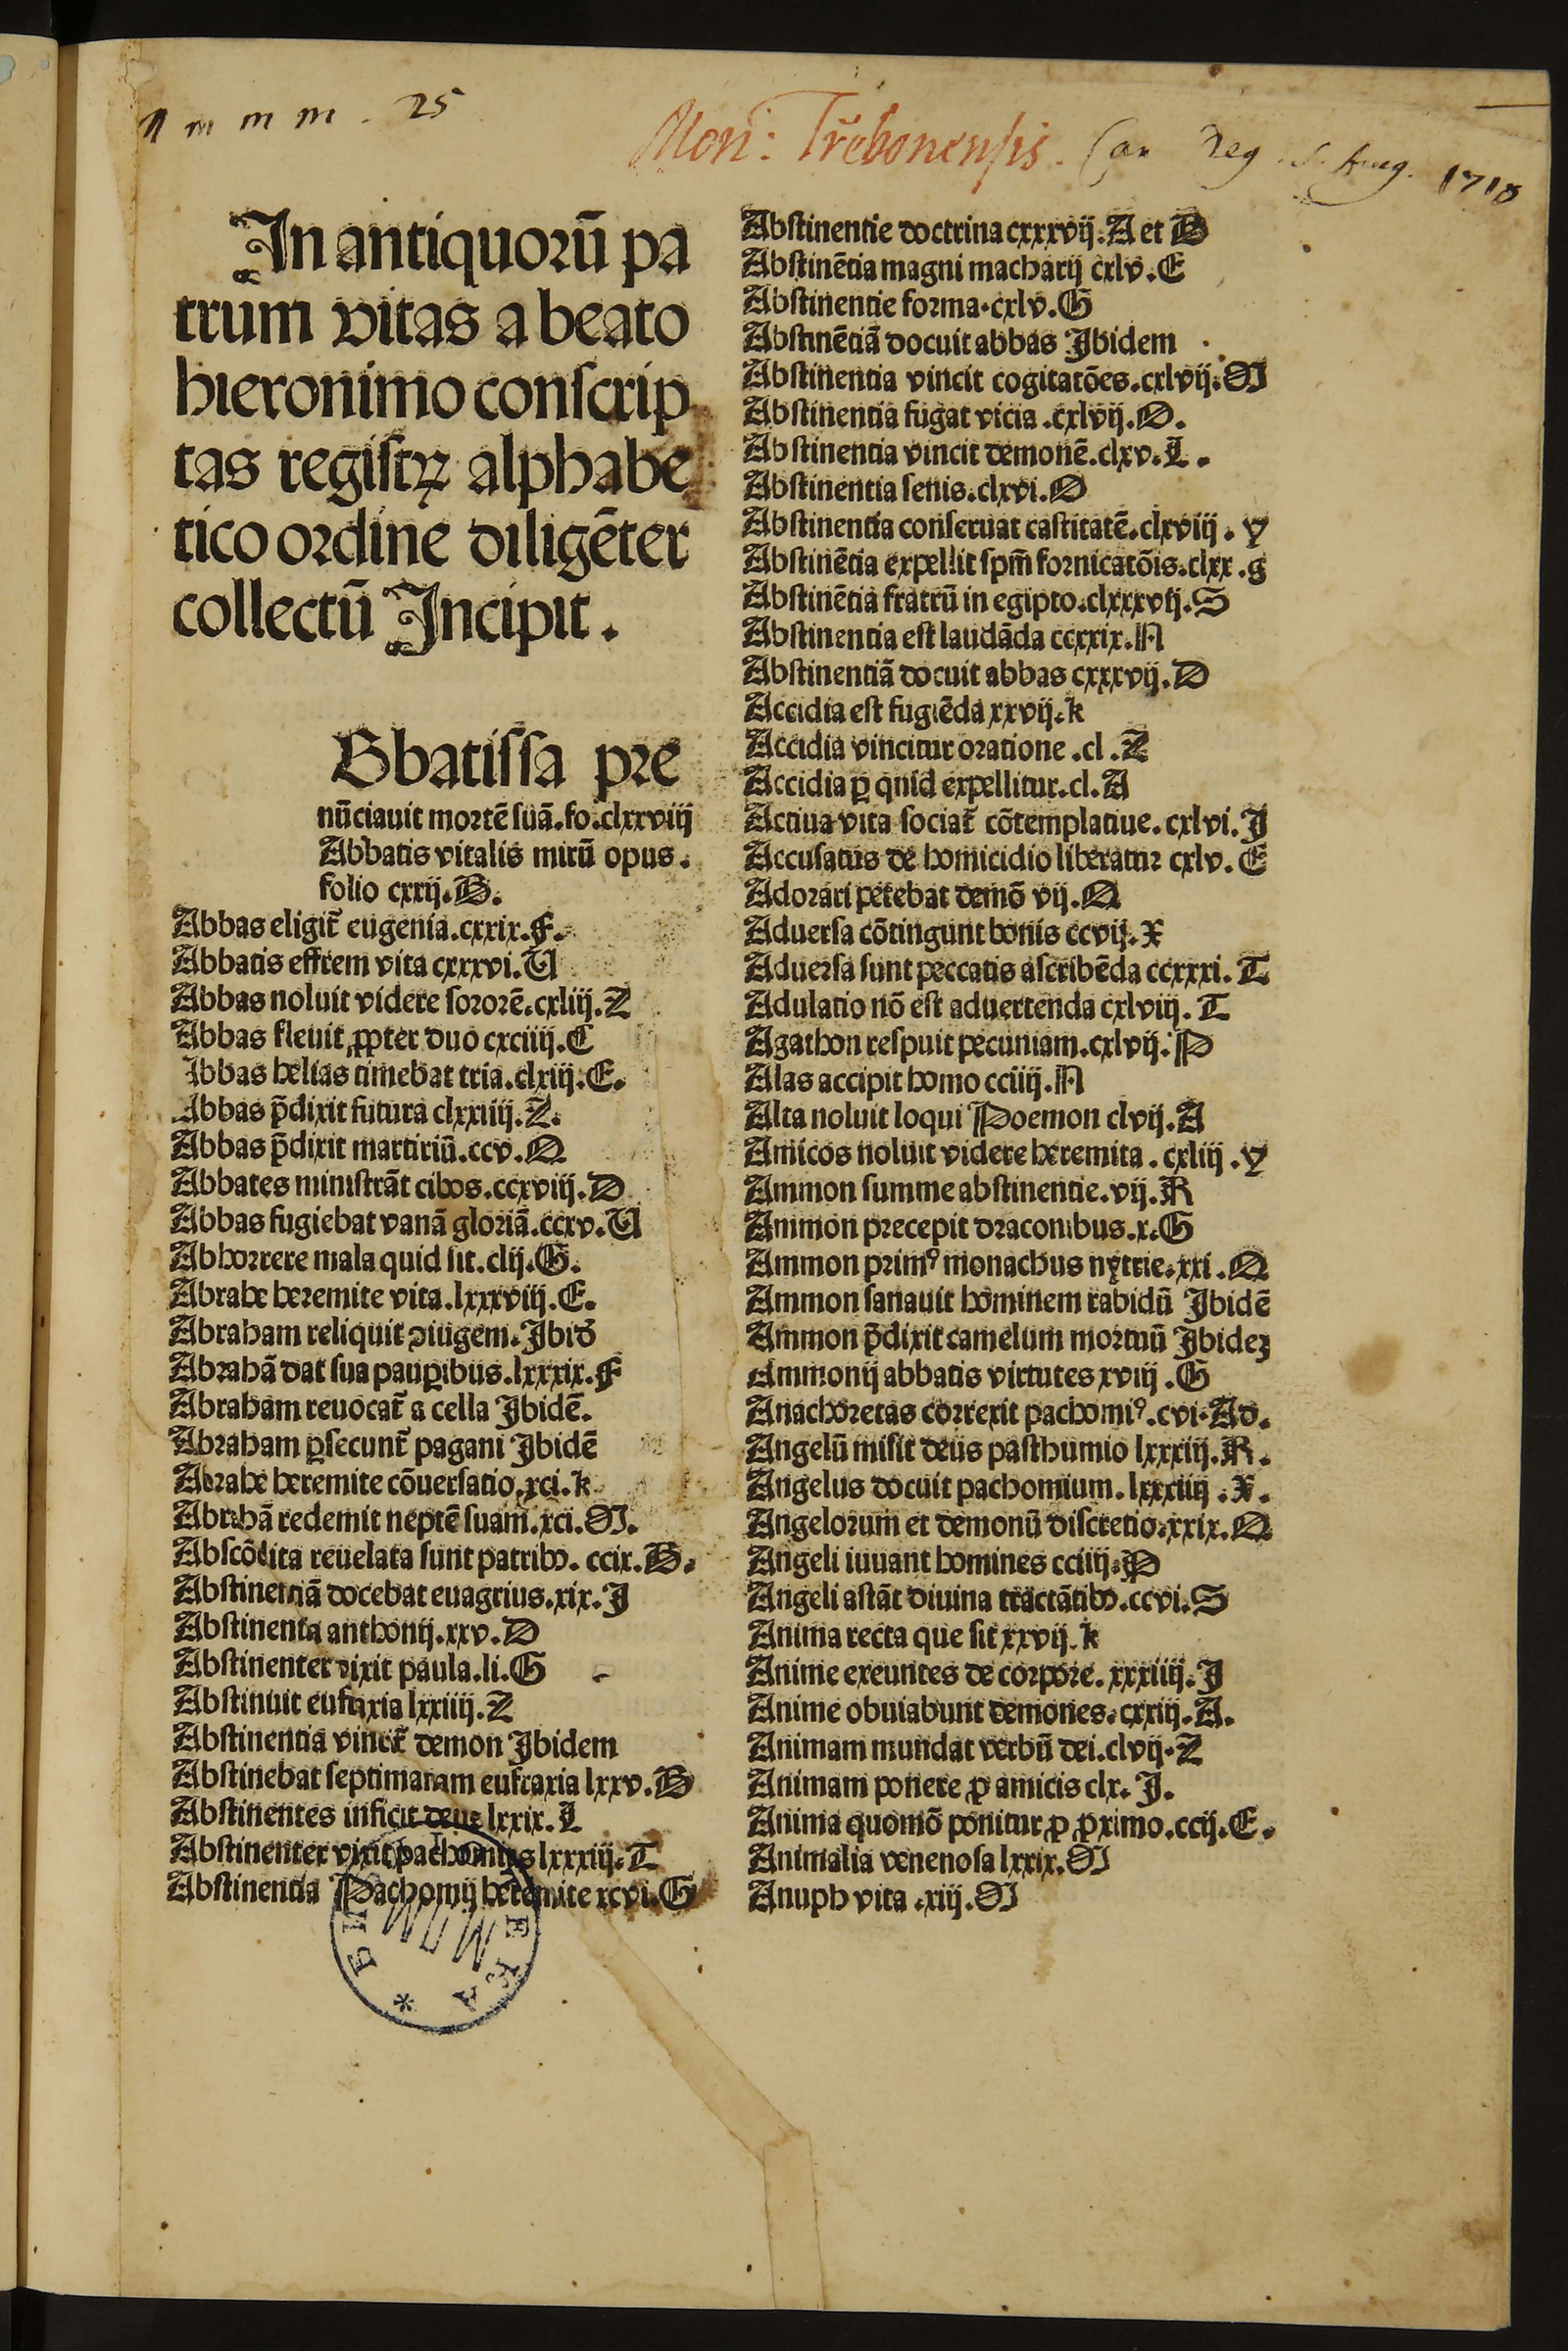 m m m . 25
Mon: Trebonensis. Can Reg. S. Aug. 1718
In antiquorū pa
trum vitas a beato
hieronimo conscrip
tas registꝝ alphabe
tico ordine diligēter
collectū Incipit.
Bbatissa pre
nūciauit mortē suā.fo.clxxviij
Abbatis vitalis mirū opus.
folio cxxij.B.
Abbas eligit᷑ eugenia.cxxix.F.
Abbatis effrem vita cxxxvi.U
Abbas noluit videre sororē.cxliij.Z
Abbas fleuit ꝓpter duo cxciiij.C
Abbas helias timebat tria.clxiij.E.
Abbas p̄dixit futura clxxiiij.Z.
Abbas p̄dixit martiriū.ccv.Q
Abbates ministrāt cibos.ccxviij.D
Abbas fugiebat vanā gloriā.ccxv.U
Abhorrere mala quid sit.clij.G.
Abrahe heremite vita.lxxxviij.E.
Abraham reliquit ↄiugem.Ibid̄
Abrahā dat sua pauꝑibus.lxxxix.F
Abraham reuocat᷑ a cella Ibidē.
Abraham ꝑsecunt᷑ pagani Ibidē
Abrahe heremite cōuersatio.xci.k
Abrahā redemit neptē suam.xci.M.
Abscōdita reuelata sunt patribꝰ. ccix.B.
Abstinentiā docebat euagrius.xix.I
Abstinentia anthonij.xxv.D
Abstinenter vixit paula.li.G
Abstinuit eufraxia lxxiiij.Z
Abstinentia vincit᷑ demon Ibidem
Abstinebat septimanam eufraxia lxxv.B
Abstinentes inficit deus lxxix.L
Abstinenter vixit pachomius lxxxiij.T
Abstinentia Pachomij heremite xcvi.G
Abstinentie doctrina cxxxvij.A et B
Abstinētia magni macharij cxlv.E
Abstinentie forma.cxlv.G
Abstinētiā docuit abbas Ibidem
Abstinentia vincit cogitatōes.cxlvij.M
Abstinentia fugat vicia.cxlvij.O.
Abstinentia vincit demonē.clxv.L.
Abstinentia senis.clxvi.O
Abstinentia conseruat castitatē.clxviij.y
Abstinētia expellit spm̄ fornicatōis.clxx.g
Abstinētia fratrū in egipto.clxxxvij.S
Abstinentia est laudāda ccxxix.N
Abstinentiā docuit abbas cxxxvij.D
Accidia est fugiēda xxvij.k
Accidia vincitur oratione.cl.Z
Accidia ꝑ quid expellitur.cl.A
Actiua vita sociat᷑ cōtemplatiue.cxlvi.I
Accusatus de homicidio liberatur cxlv.E
Adorari petebat demō vij.Q
Aduersa cōtingunt bonis ccvij.X
Aduersa sunt peccatis ascribēda ccxxxi.T
Adulatio nō est aduertenda cxlviij.T
Agathon respuit pecuniam.cxlvij.P
Alas accipit homo cciiij.N
Alta noluit loqui Poemon clvij.A
Amicos noluit videre heremita.cxliij.y
Ammon summe abstinentie.vij.R
Ammon precepit draconibus.x.G
Ammon primꝰ monachus nytrie.xxi.Q
Ammon sanauit hominem rabidū Ibidē
Ammon p̄dixit camelum mortuū Ibideꝫ
Ammonij abbatis virtutes xviij.G
Anachoretas correxit pachomiꝰ.cvi.Ad.
Angelū misit deus pasthumio lxxxiij.R.
Angelus docuit pachomium.lxxxiij.X.
Angelorum et demonū discretio.xxix.Q
Angeli iuuant homines cciiij.P
Angeli astāt diuina tractātibꝰ.ccvi.S
Anima recta que sit xxvij.k
Anime exeuntes de corpore.xxxiiij.I
Anime obuiabunt demones.cxxiij.A.
Animam mundat verbū dei.clvij.Z
Animam ponere ꝓ amicis clx.I.
Anima quomō ponitur ꝓ ꝓximo.ccij.E.
Animalia venenosa lxxix.M
Anuph vita.xiij.M